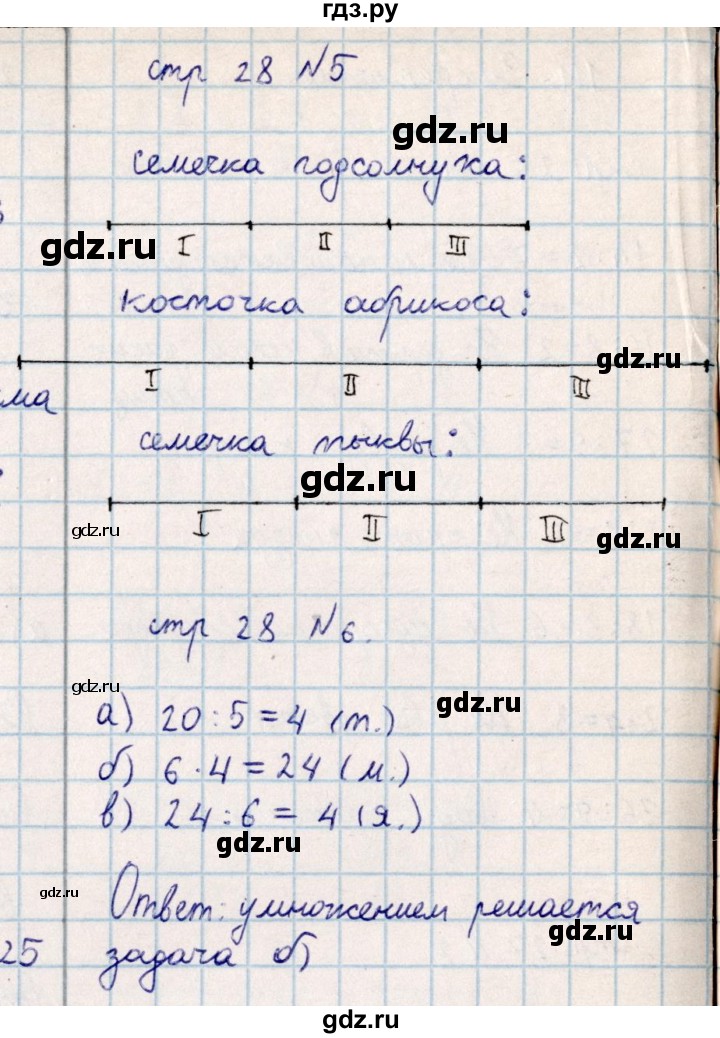 гдз.ру
стр 28 №5
gdz.ru
семечка подсолнуха:
gdz.ru
I II III
косточка абрикоса:
gdz.ru
I II III
ма
семечка тыквы:
gdz.ru
gdz.ru
I II III
gdz.ru
стр 28 №6.
gdz.ru
gdz.ru
а) 20:5=4 (т.)
б) 6·4=24 (м.)
в) 24:6=4 (я.)
gdz.ru
gdz.ru
Ответ: умножением решается
gdz.ru
25 задача б)
gdz.ru